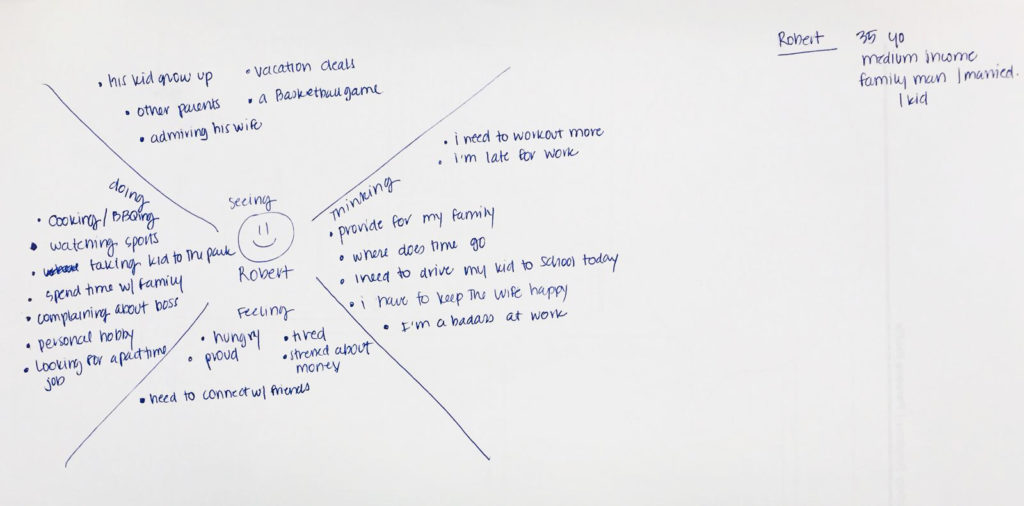 Robert 35 yo
medium income
family man / married.
1 kid
• his kid grow up
• vacation deals
• other parents
• a Basketball game
• admiring his wife
seeing
Robert
doing
• cooking / BBQing
• watching sports
• taking kid to the park
• spend time w/ family
• complaining about boss
• personal hobby
• looking for a part time
job
Thinking
• i need to workout more
• i'm late for work
• provide for my family
• where does time go
• i need to drive my kid to school today
• i have to keep the wife happy
• I'm a badass at work
Feeling
• hungry
• proud
• tired
• stressed about
money
• need to connect w/ friends